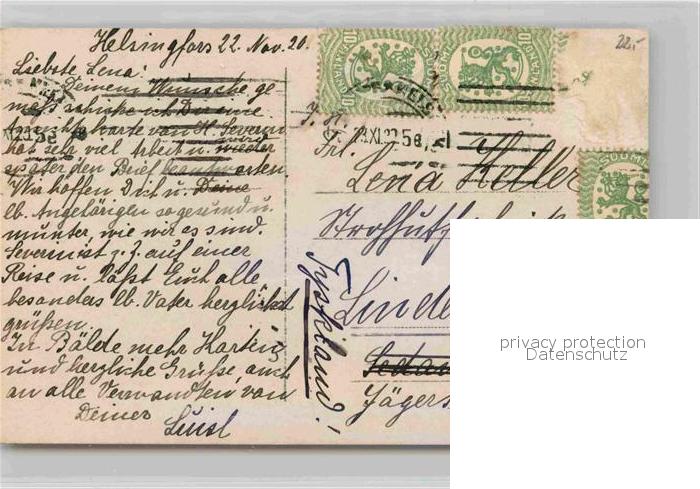 Helsingfors 22. Nov. 20.
22.-
Liebste Lena!
Deinem Wunsche ge
mäß schicke ich Dir eine
Ansichtskarte von H. Severin
hat sehr viel Arbeit u. wird
später den Brief beantworten.
Wir hoffen Dich u. Deine
lb. Angehörigen so gesund u.
munter, wie wir es sind.
Severin ist z. Z. auf einer
Reise u. läßt Euch alle
besonders lb. Vater herzlichst
grüßen.
In Bälde mehr
und herzliche Grüße, auch
an alle Verwandten, von
Deiner
Luisl
SUOMI
10
SUOMI
10
SUOMI
Frl.
Lena Keller
Strohhutf
Linde
Jägers
privacy protection
Datenschutz